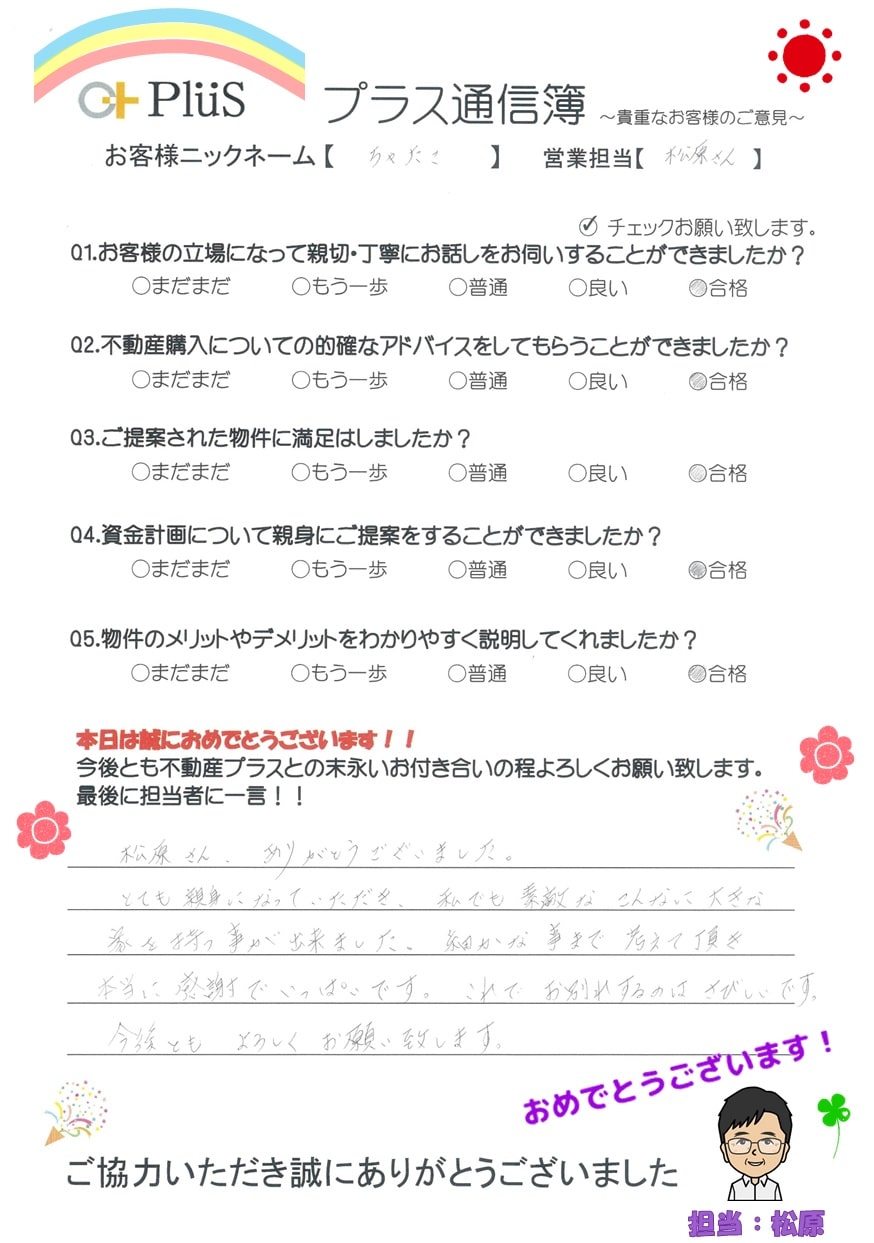 PlüS プラス通信簿 ～貴重なお客様のご意見～
お客様ニックネーム【 ちゃたこ 】 営業担当【 松原さん 】
チェックお願い致します。
Q1.お客様の立場になって親切・丁寧にお話しをお伺いすることができましたか？
○まだまだ ○もう一歩 ○普通 ○良い ○合格
Q2.不動産購入についての的確なアドバイスをしてもらうことができましたか？
○まだまだ ○もう一歩 ○普通 ○良い ○合格
Q3.ご提案された物件に満足はしましたか？
○まだまだ ○もう一歩 ○普通 ○良い ○合格
Q4.資金計画について親身にご提案をすることができましたか？
○まだまだ ○もう一歩 ○普通 ○良い ○合格
Q5.物件のメリットやデメリットをわかりやすく説明してくれましたか？
○まだまだ ○もう一歩 ○普通 ○良い ○合格
本日は誠におめでとうございます！！
今後とも不動産プラスとの末永いお付き合いの程よろしくお願い致します。
最後に担当者に一言！！
松原さん、ありがとうございました。
とても親身になっていただき、私でも素敵なこんなに大きな
家を持つ事が出来ました。細かな事まで考えて頂き
本当に感謝でいっぱいです。これでお別れするのはさびしいです。
今後ともよろしくお願い致します。
おめでとうございます！
ご協力いただき誠にありがとうございました
担当：松原